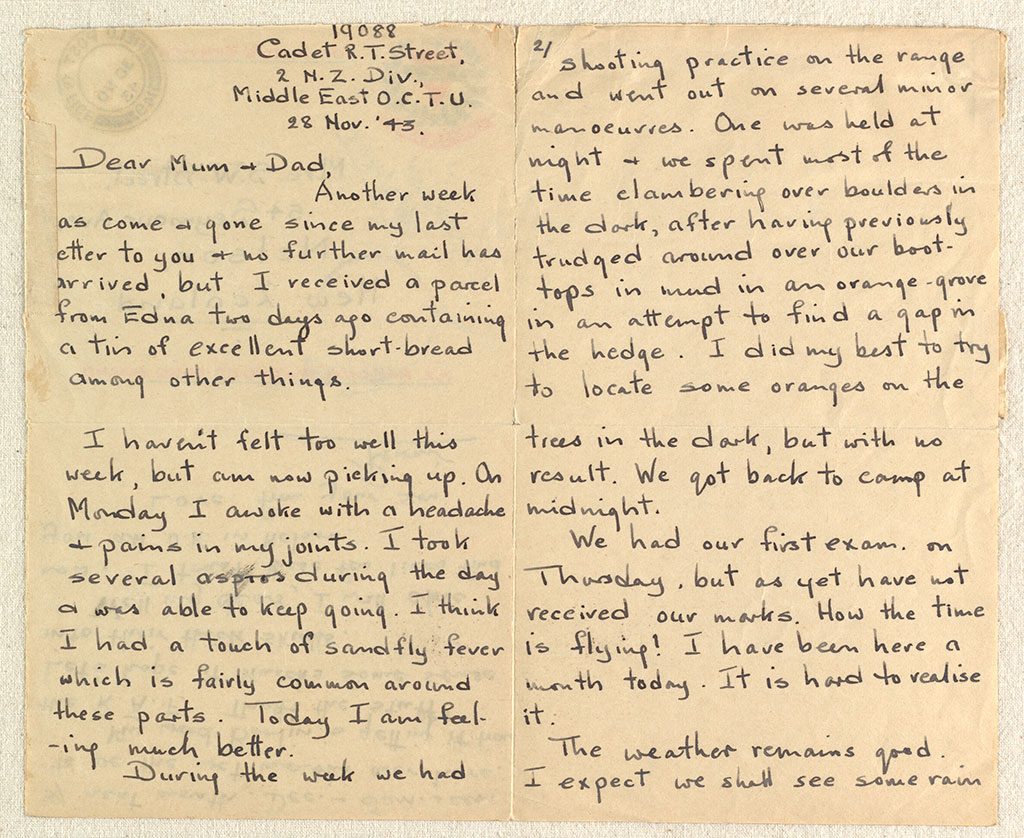 19088
Cadet R.T. Street,
2 N.Z. Div.,
Middle East O.C.T.U.
28 Nov. '43.
Dear Mum + Dad,
Another week
as come + gone since my last
etter to you + no further mail has
arrived, but I received a parcel
from Edna two days ago containing
a tin of excellent short-bread
among other things.
I haven't felt too well this
week, but am now picking up. On
Monday I awoke with a headache
+ pains in my joints. I took
several aspros during the day
+ was able to keep going. I think
I had a touch of sandfly fever
which is fairly common around
these parts. Today I am feel-
-ing much better.
During the week we had
2/ shooting practice on the range
and went out on several minor
manoeuvres. One was held at
night + we spent most of the
time clambering over boulders in
the dark, after having previously
trudged around over our boot-
tops in mud in an orange-grove
in an attempt to find a gap in
the hedge. I did my best to try
to locate some oranges on the
trees in the dark, but with no
result. We got back to camp at
midnight.
We had our first exam. on
Thursday, but as yet have not
received our marks. How the time
is flying! I have been here a
month today. It is hard to realise
it.
The weather remains good.
I expect we shall see some rain